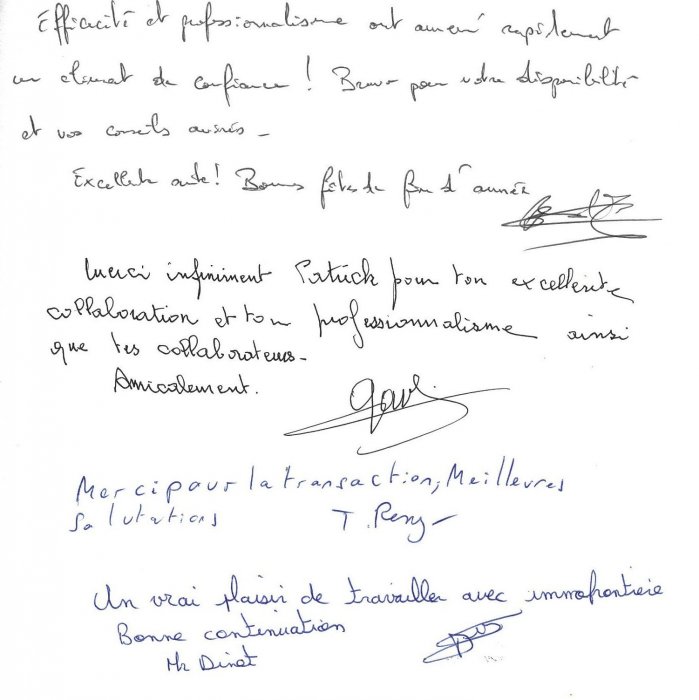 Efficacité et professionnalisme ont amené rapidement
un climat de confiance ! Bravo pour votre disponibilité
et vos conseils avisés -
Excellente suite ! Bonnes fêtes de fin d'année
Merci infiniment Patrick pour ton excellente
collaboration et ton professionnalisme ainsi
que tes collaborateurs.
Amicalement.
Merci pour la transaction, Meilleures
Salutations T. Remy
Un vrai plaisir de travailler avec immofrontiere
Bonne continuation
Mr Dinet